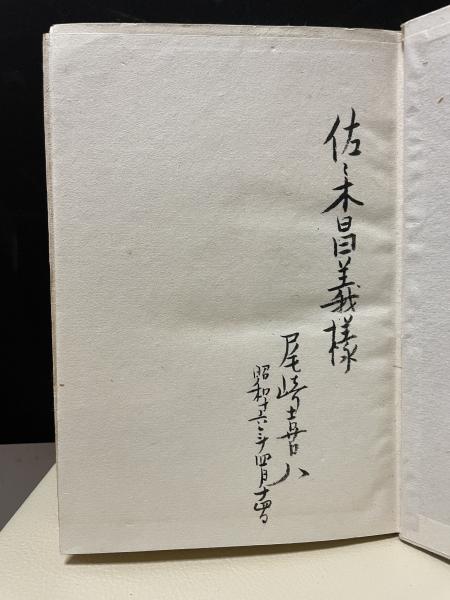 佐々木昌義様
尾崎喜八
昭和十六年四月十四日